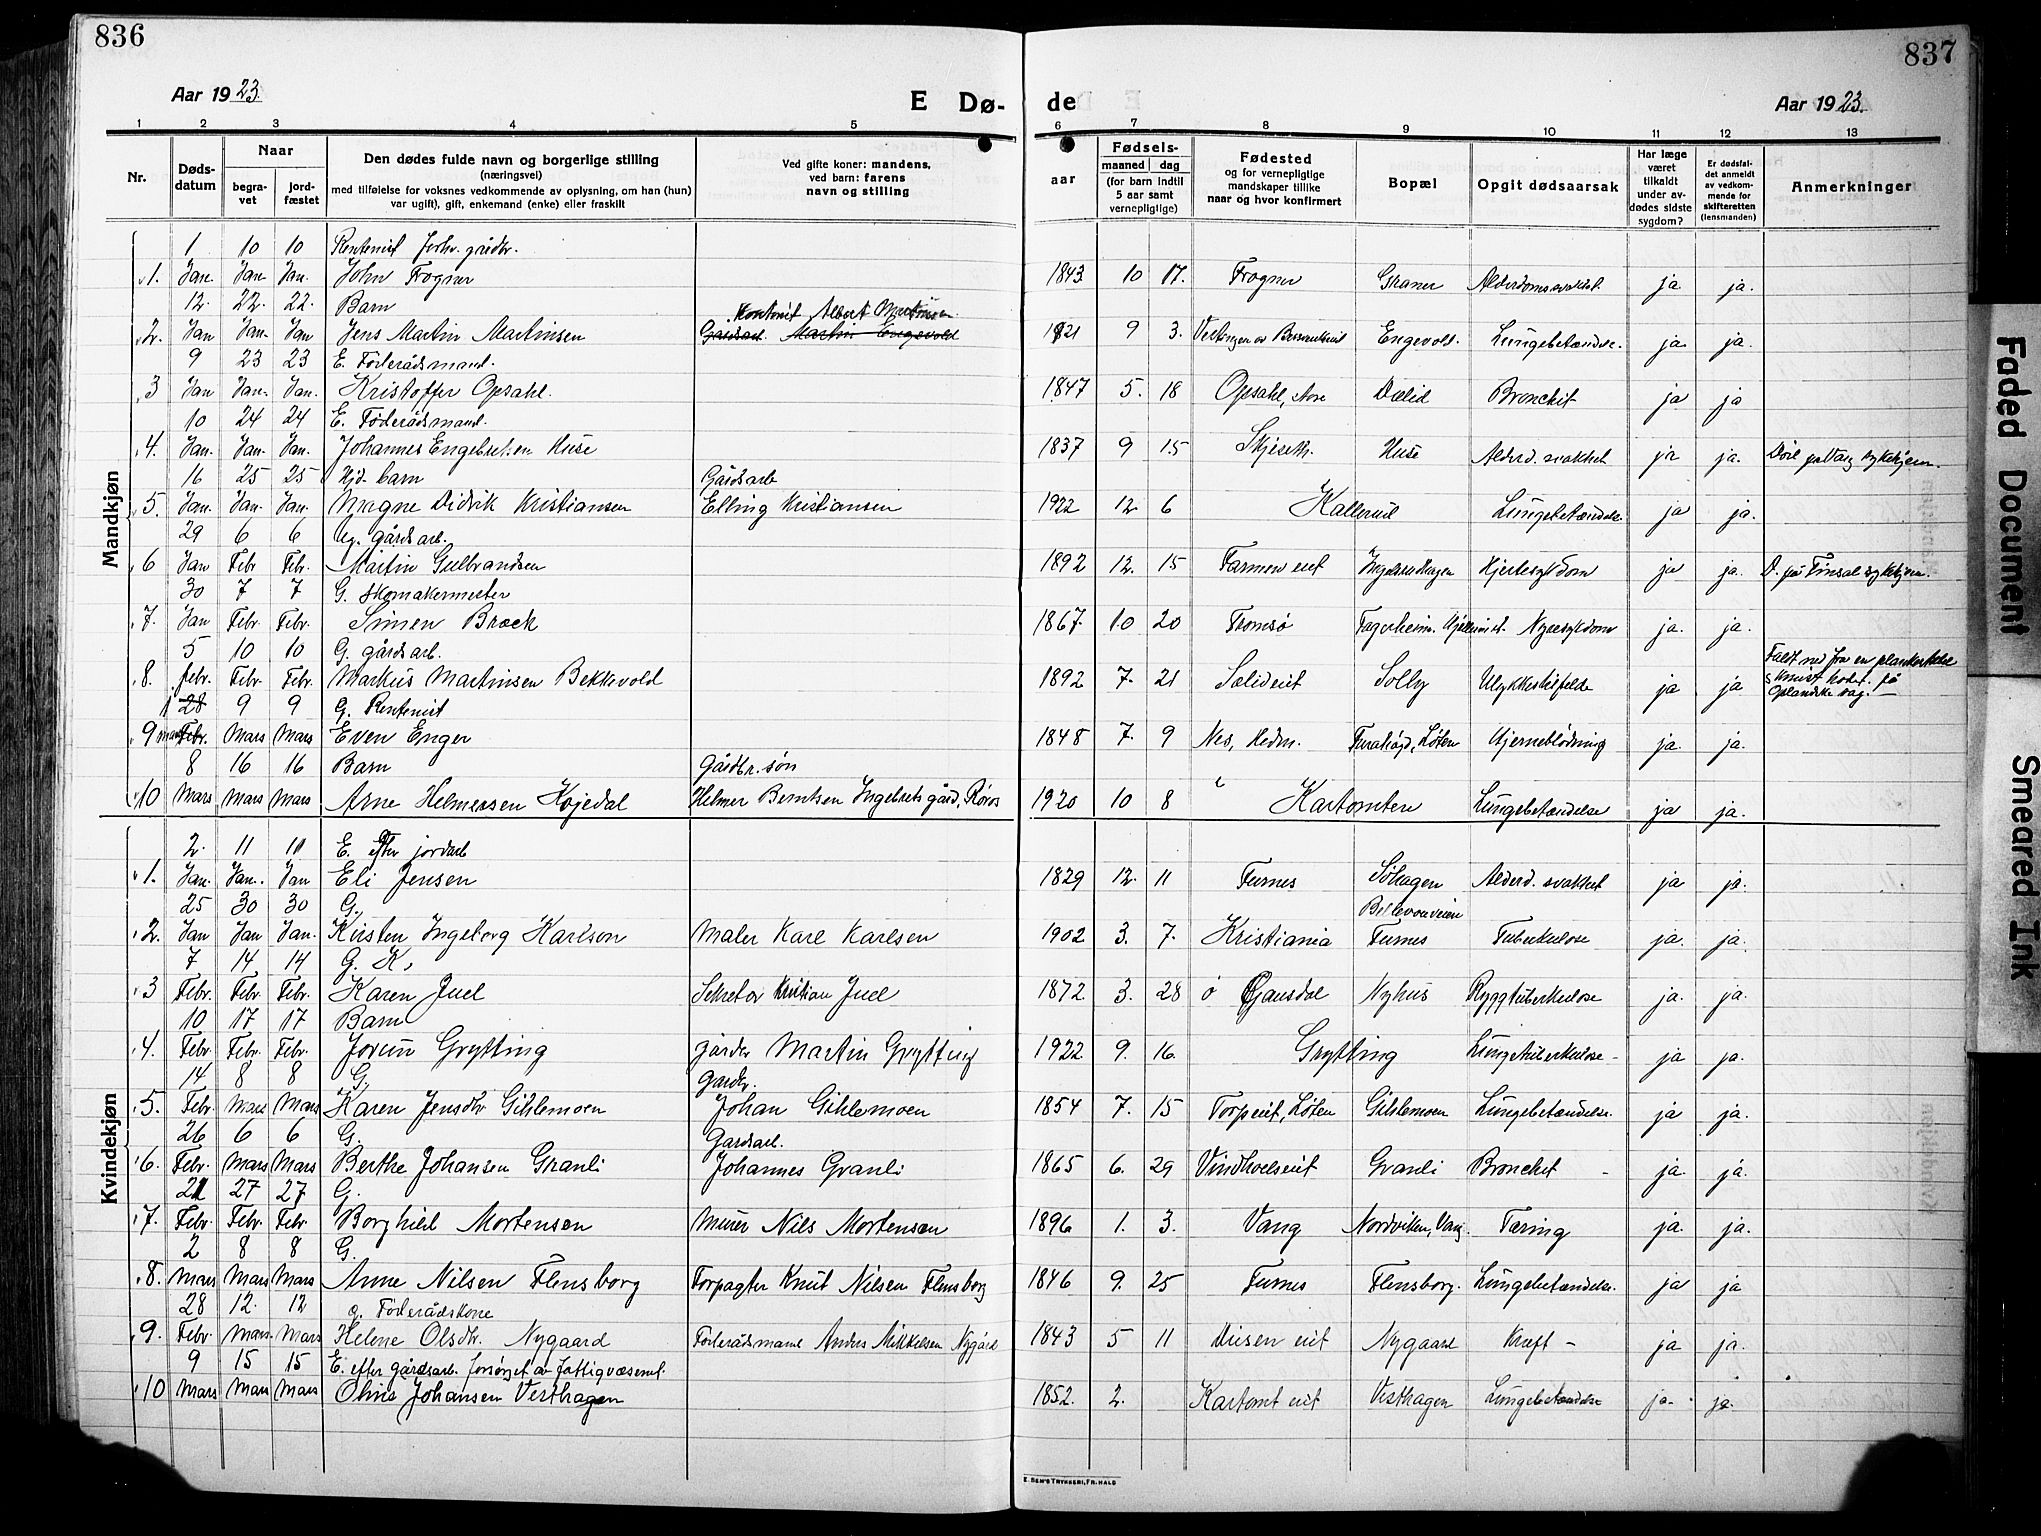 836
837
Aar 1923.
E Dø-
de
Aar 1923.
1 2 3 4 5
6 7 8 9 10 11 12 13
Nr.
Døds-
datum
Naar
begra-
vet
jord-
fæstet
Den dødes fulde navn og borgerlige stilling
(næringsvei)
med tilføielse for voksnes vedkommende av oplysning, om han (hun)
var ugift), gift, enkemand (enke) eller fraskilt
Ved gifte koner: mandens,
ved barn: farens
navn og stilling
aar
Fødsels-
maaned dag
(for barn indtil
5 aar samt
vernepligtige)
Fødested
og for vernepligtige
mandskaper tillike
naar og hvor konfirmert
Bopæl
Opgit dødsaarsak
Har læge
været
tilkaldt
under av-
dødes sidste
sygdom?
Er dødsfal-
det anmeldt
av vedkom-
mende for
skifteretten
(lensmanden)
Anmerkninger
Mandkjøn
1 10 10 Rentenist forhv. gårdbr.
1. Jan. Jan. Jan. John Frogner 1843 10 17. Frogner Graner Alderdomssvakhet ja ja.
12. 22. 22. Barn Albert Martinsen
2. Jan Jan. Jan Jens Martin Martinsen Gårdsarb. Martin Engevold 1921 9 3. Engevold. Lungebetændelse. ja ja.
9 23 23 E. Föderådsmand.
3 Jan Jan. Jan. Kristoffer Opsahl. 1847 5. 18 Opsahl, Dælid Bronchit ja ja
10 24 24 E. Föderådsmand.
4. Jan. Jan. Jan. Johannes Engebretsen Huse 1837 9 15. Skjeseth. Huse Alderd. svakhet ja ja. Död på Vang sykehjem.
16 25 25 Gårdsarb
5. Jan. Jan. Jan. Magne Didrik Kristiansen Elling Kristiansen 1922 12 6 Kallerud Lungebetændelse. ja ja.
29 6 6 Ug. gårdsarb.
6 Jan Febr Febr. Martin Gulbrandsen 1892 12. 15 Farmen eiet Hjertesykdom ja ja. D. på Finsal sykehjem.
30 7 7 G. Skomakermester
7. Jan Febr. Febr. Simen Bræck 1867. 10 20 Tromsø Fagerheim. Nyresykdom ja. ja.
5 10 10 G. gårdsarb. Falt ned fra en plankestabel
8. febr. Febr. Febr. Markus Martinsen Bekkevold 1892 7. 21 Solby Ulykkestilfelde ja ja knust hodet på
Oplandske sag.
1 28 9 9 G. Rentenist
9 mars Febr. Mars Mars Even Enger 1848 7. 9 Nes, Hedm. Furuhögd, Løten Hjerneblödning ja. ja.
8 16 16 Barn Gårdbr. søn
10 Mars Mars Mars Arne Helmersen Kojedal Hilmer Berntsen Ingebrets gård, Røros 1920 10 8 Kartomten Lungebetændelse ja ja.
Kvindekjøn
2. 11 11 E. efter jordarb
1. Jan. Jan. Jan Eli Jensen 1829 12. 11 Furnes Söhagen Alderd. svakhet ja ja.
25 30 30 G. Bellevueveien
2. Jan Jan Jan. Kirsten Ingeborg Karlson Maler Karl Karlsen 1902 3. 7. Kristiania Furnes Tuberkulose ja. ja.
7 14 14 G. K.
3 Febr. Febr. Febr. Karen Juel Sekretær Kristian Juel 1872 3. 28 Ø Gausdal Nyhus Ryggtuberkulose ja. ja.
10 17 17 Barn
4. Febr. Febr. Febr. Jorun Grytting Martin Grytting 1922 9. 16. Grytting Lungetuberkulose - ja ja.
14 8 8 G. Gårdbr.
5. Febr. Mars Mars Karen Jensdtr Gihlemoen Johan Gihlemoen 1854 7. 15 Torpeiet, Løten Gihlemoen Lungebetændelse. ja ja.
26 6 6 G. Gardsarb.
6. Febr. Mars Mars Berthe Johansen Granli Johannes Granli 1865 6. 29 Granli Bronchit - ja. ja.
21 27 27 G.
7. Febr. Febr. Febr. Borghild Mortensen Murer Nils Mortensen 1896 1. 3. Vang Nordviken, Vang. Tæring ja. ja.
2 8 8 G.
8. Mars Mars Mars Anne Nilsen Flensborg Forpagter Knut Nilsen Flensborg 1846 9. 25 Furnes Flensborg. Lungebetændelse. ja ja
28 12. 12 g. Föderådskone
9. Febr. Mars. Mars Helene Olsdtr. Nygaard Föderådsmand Anders Mikkelsen Nygård 1843 5 11 Diesen eiet Nygaard Kræft - ja ja.
9 15 15 E. efter gårdsarb. forsørget av fattigvæsenet.
10 Mars Mars Mars Oline Johansen Vesthagen 1852. 2. Kartomt eiet Vesthagen Lungebetændelse ja. ja.
E. SEM'S TRYKKERI, FR.HALD
Faded Document
Smeared Ink